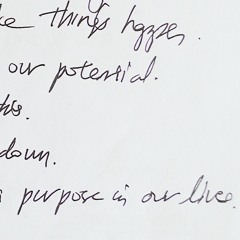 things happen.
our potential.
down.
purpose in our lives.